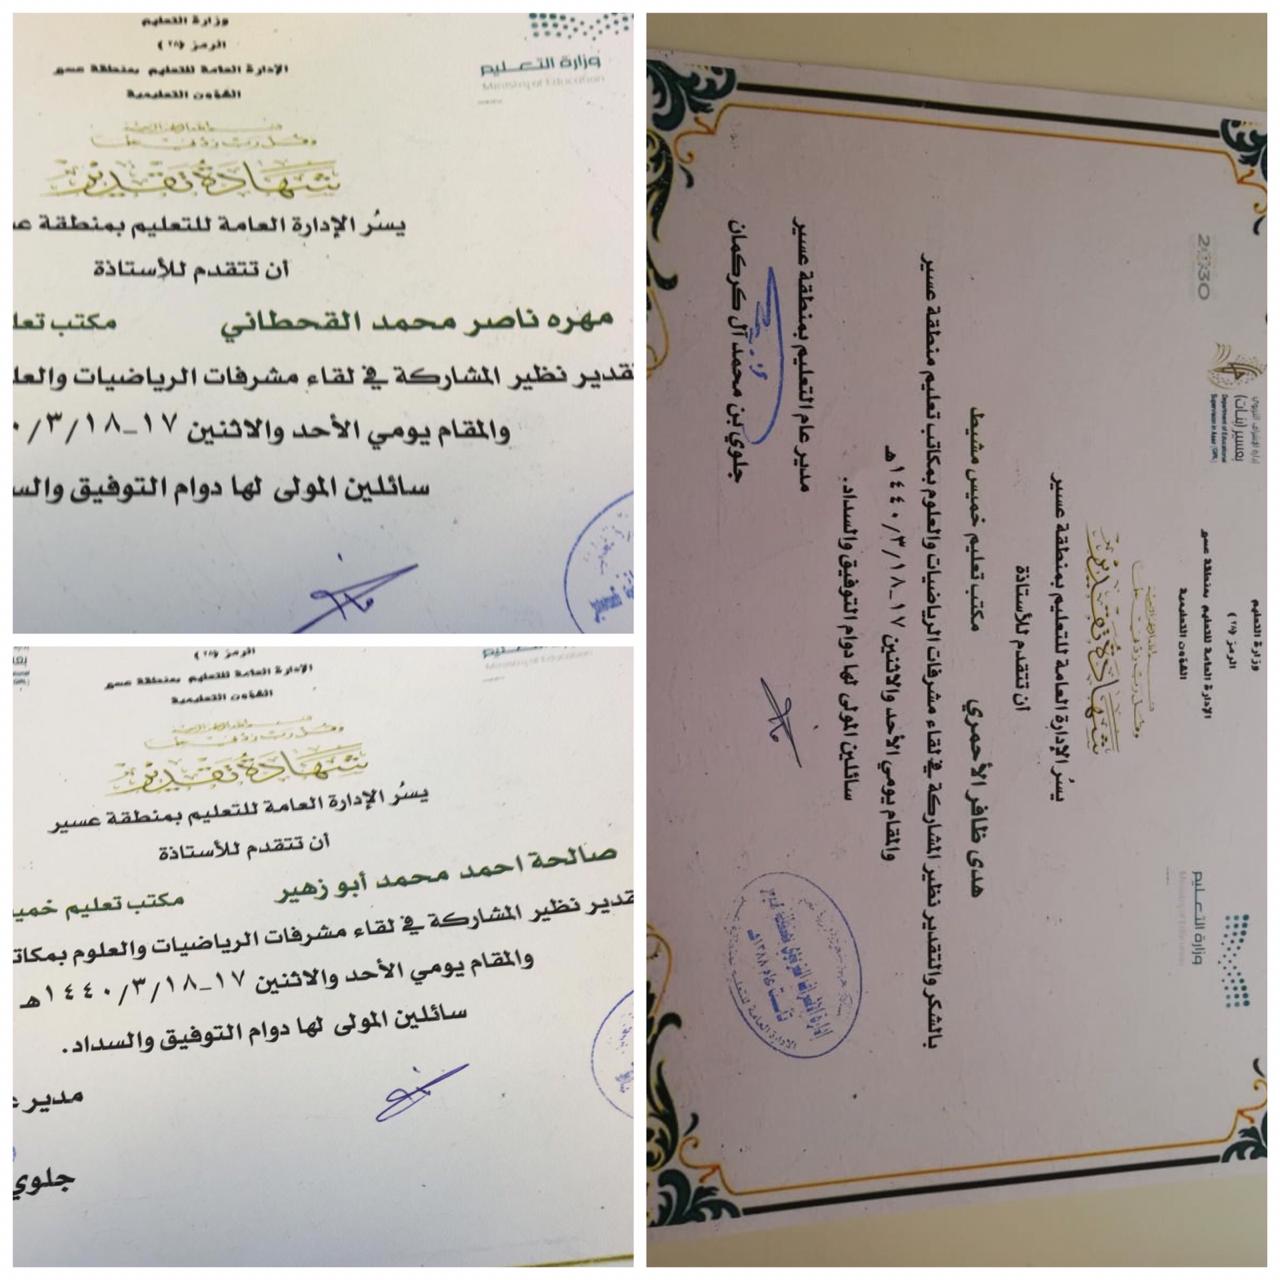 وزارة التعليم
الرمز (٢٨)
الإدارة العامة للتعليم بمنطقة عسير
الشؤون التعليمية
وزارة التعليم
Ministry of Education
شهادة تقدير
يسُر الإدارة العامة للتعليم بمنطقة عس
أن تتقدم للأستاذة
مهره ناصر محمد القحطاني مكتب تعل
قدير نظير المشاركة في لقاء مشرفات الرياضيات والعل
والمقام يومي الأحد والاثنين ١٧-١٨/٣/٠
سائلين المولى لها دوام التوفيق والس
الرمز (٢٨)
الإدارة العامة للتعليم بمنطقة عسير
الشؤون التعليمية
شهادة تقدير
يسُر الإدارة العامة للتعليم بمنطقة عسير
أن تتقدم للأستاذة
صالحة احمد محمد أبو زهير مكتب تعليم خمي
قدير نظير المشاركة في لقاء مشرفات الرياضيات والعلوم بمكات
والمقام يومي الأحد والاثنين ١٧-١٨/٣/١٤٤٠هـ
سائلين المولى لها دوام التوفيق والسداد.
مدير ع
جلوي
وزارة التعليم
الرمز (٢٨)
الإدارة العامة للتعليم بمنطقة عسير
الشؤون التعليمية
وزارة التعليم
Ministry of Education
2030
بعسير (بنات)
Department of Educational
Supervision in Aseer (GIRL)
شهادة تقدير
يسُر الإدارة العامة للتعليم بمنطقة عسير
أن تتقدم للأستاذة
هدى ظافر الأحمري مكتب تعليم خميس مشيط
بالشكر والتقدير نظير المشاركة في لقاء مشرفات الرياضيات والعلوم بمكاتب تعليم منطقة عسير
والمقام يومي الأحد والاثنين ١٧-١٨/٣/١٤٤٠هـ
سائلين المولى لها دوام التوفيق والسداد.
مدير عام التعليم بمنطقة عسير
جلوي بن محمد آل كركمان